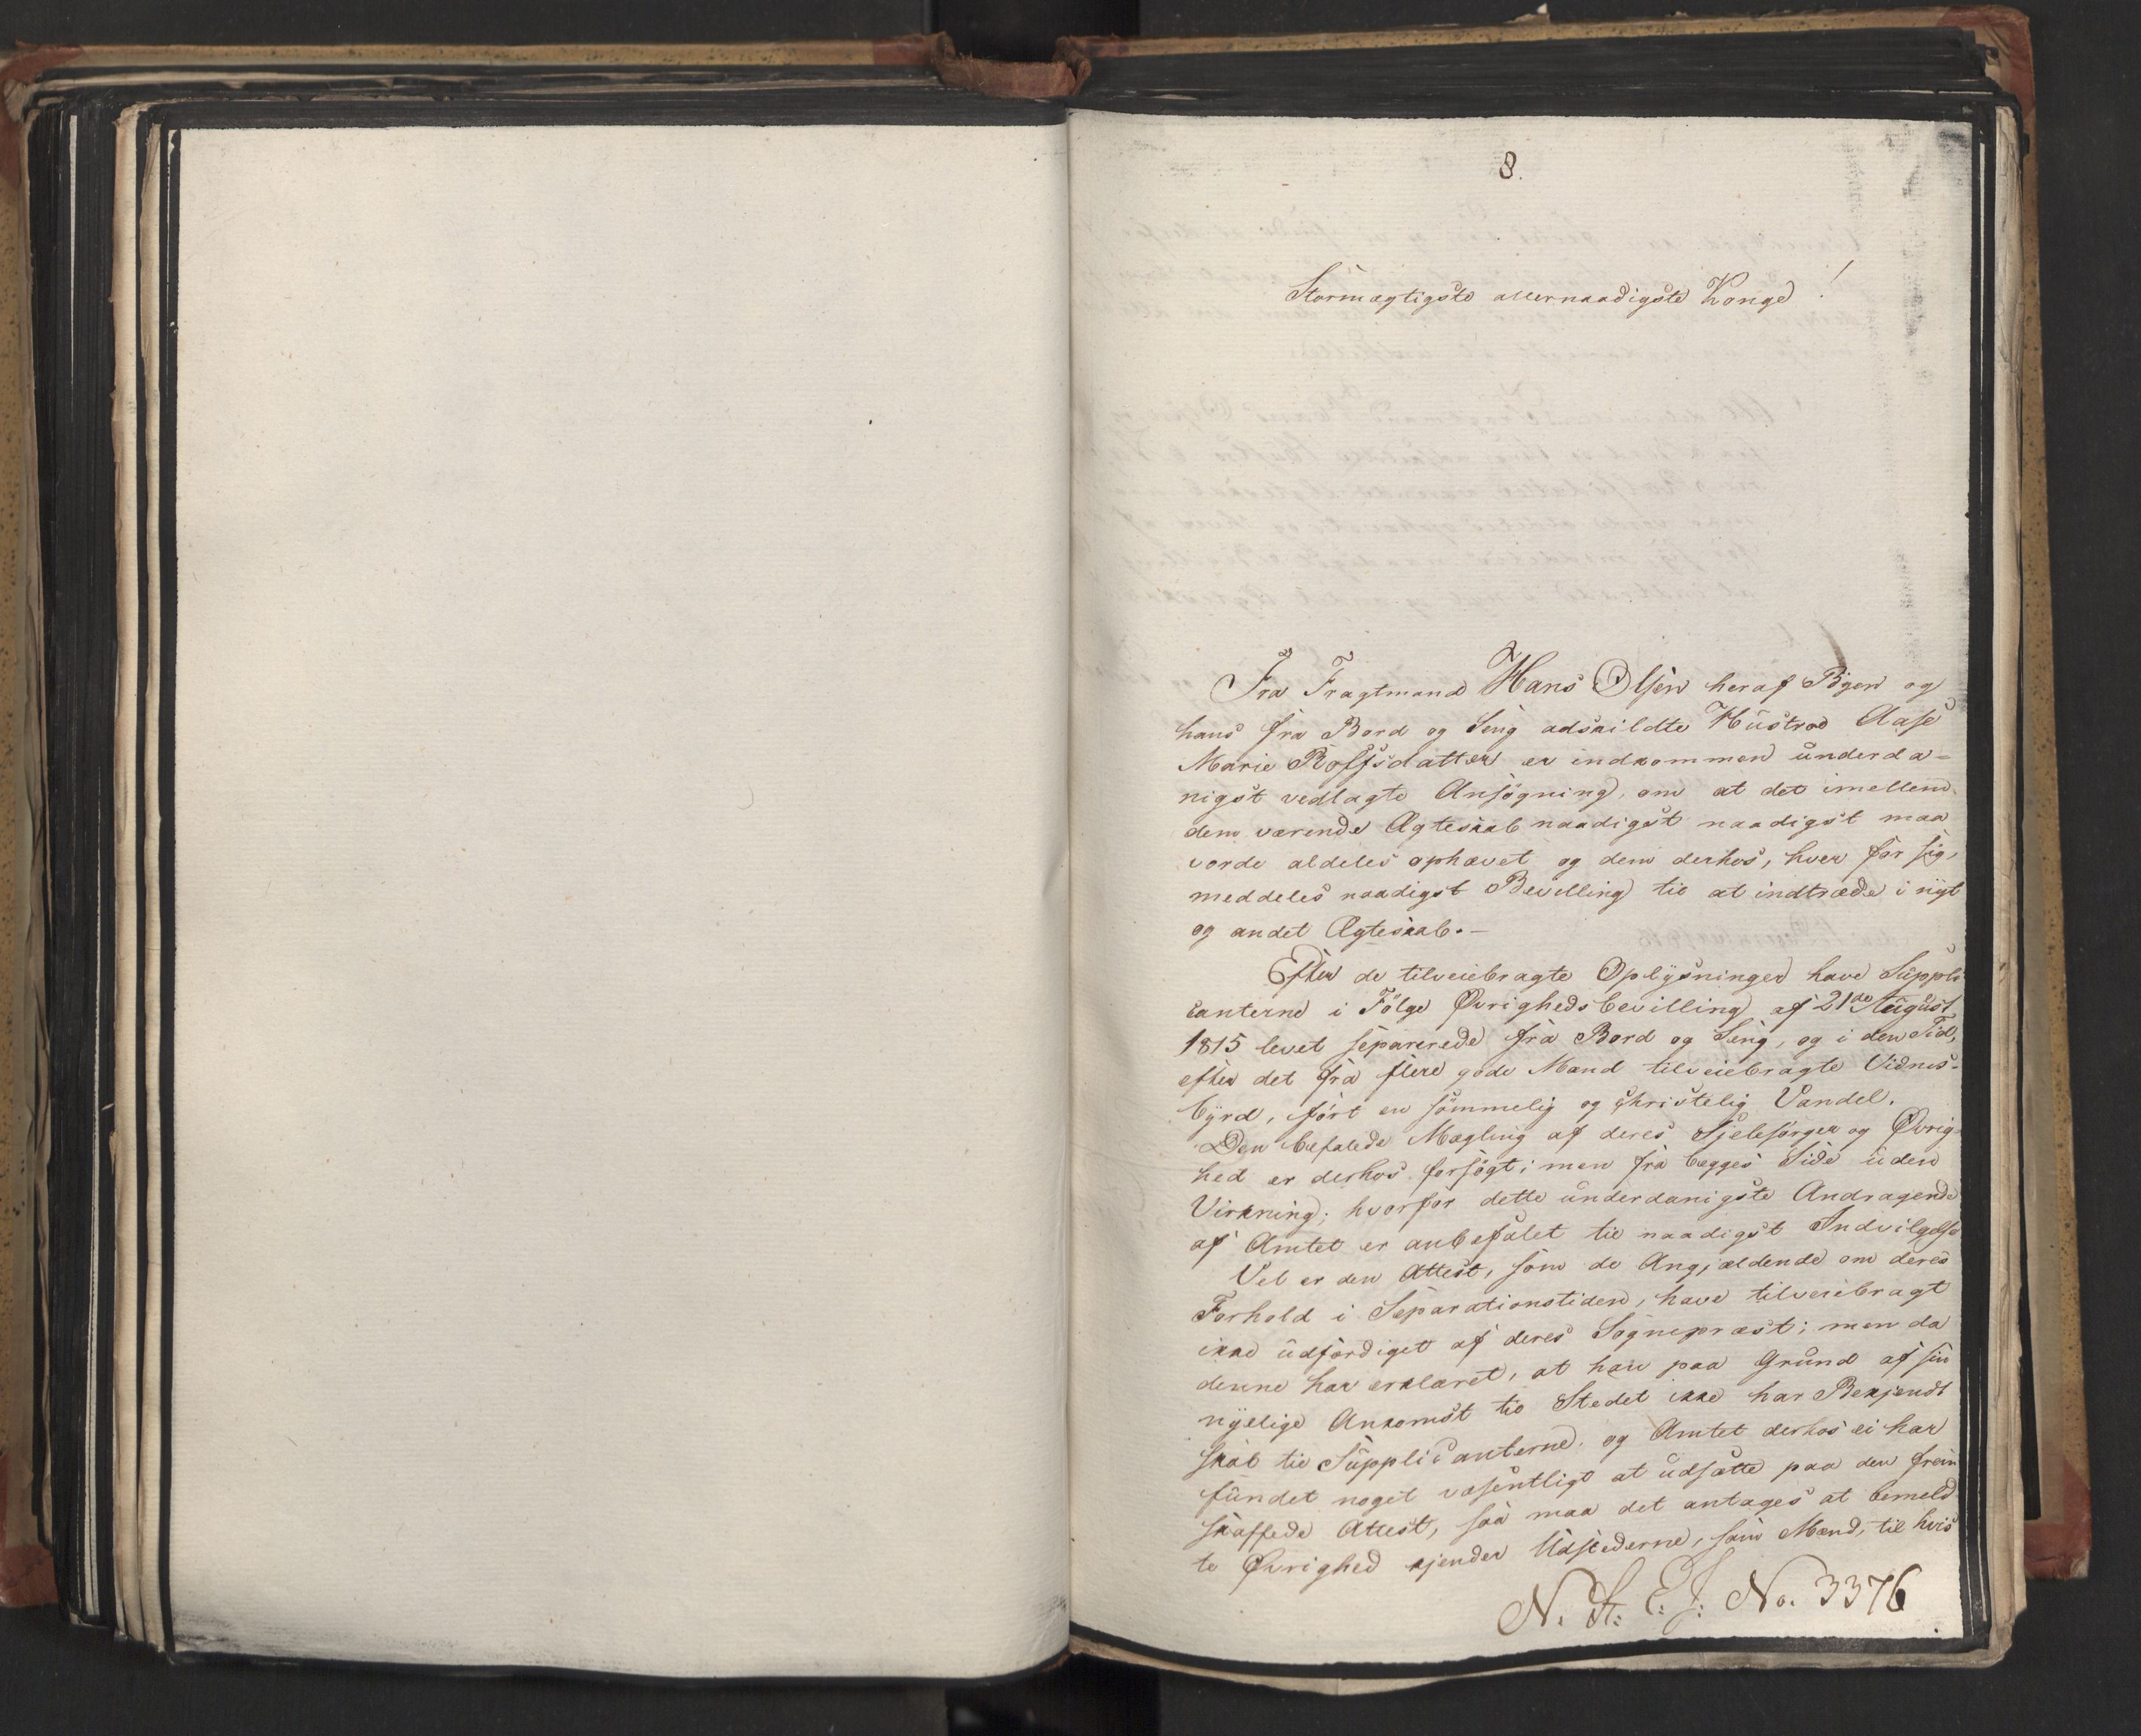 8.
Stormægtigste allernaadigste Konge!
Fra Fragtmand Hans Olsen heraf Byen og
hans fra Bord og Seng adskildte Hustroe Aase
Marie Rolfsdatter er indkommen underda=
nigst vedlagte Ansøgning, om at det imellem
dem værende Ægteskab naadigst naadigst maa
vorde aldeles ophævet og dem derhos, hver for sig,
meddeles naadigst Bevilling til at indtræde i nyt
og andet Ægteskab.-
Efter de tilveiebragte Oplysninger have Suppli
canterne i Følge Øvrighedsbevilling af 21de August
1815 levet separerede fra Bord og Seng, og i den Tid,
efter det fra flere gode Mænd tilveiebragte Vidnes-
byrd, ført en sømmelig og christelig Vandel.
Den befalede Mægling af deres Sjelesørger og Øvrig-
hed er derhos forsøgt; men fra begges Side uden
Virkning; hvorfor dette underdanigste Andragende
af Amtet er anbefalet til naadigst Indvilgelse
Vel er den Attest, som de Angjældende om deres
Forhold i Separationstiden, have tilveiebragt
ikke udfærdiget af deres Sognepræst; men da
denne har erklæret, at han paa Grund af sin
nyelige Ankomst til Stedet ikke har Bekjendt
skab til Supplicanterne, og Amtet derhos ei har
fundet noget væsentligt at udsætte paa den frem
skaffede Attest, saa maa det antages at bemeld
te Øvrighed kjender Udstederne, som Mænd, til hvis
N. St: E: J: No. 3376